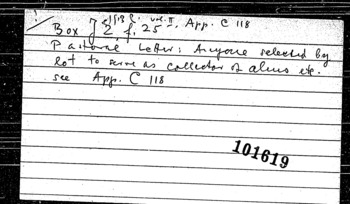 vol. II. App. C 118
Box 2, f. 25
Pastoral Letter: Anyone selected by
lot to serve as collector of alms etc.
see App. C 118
101619